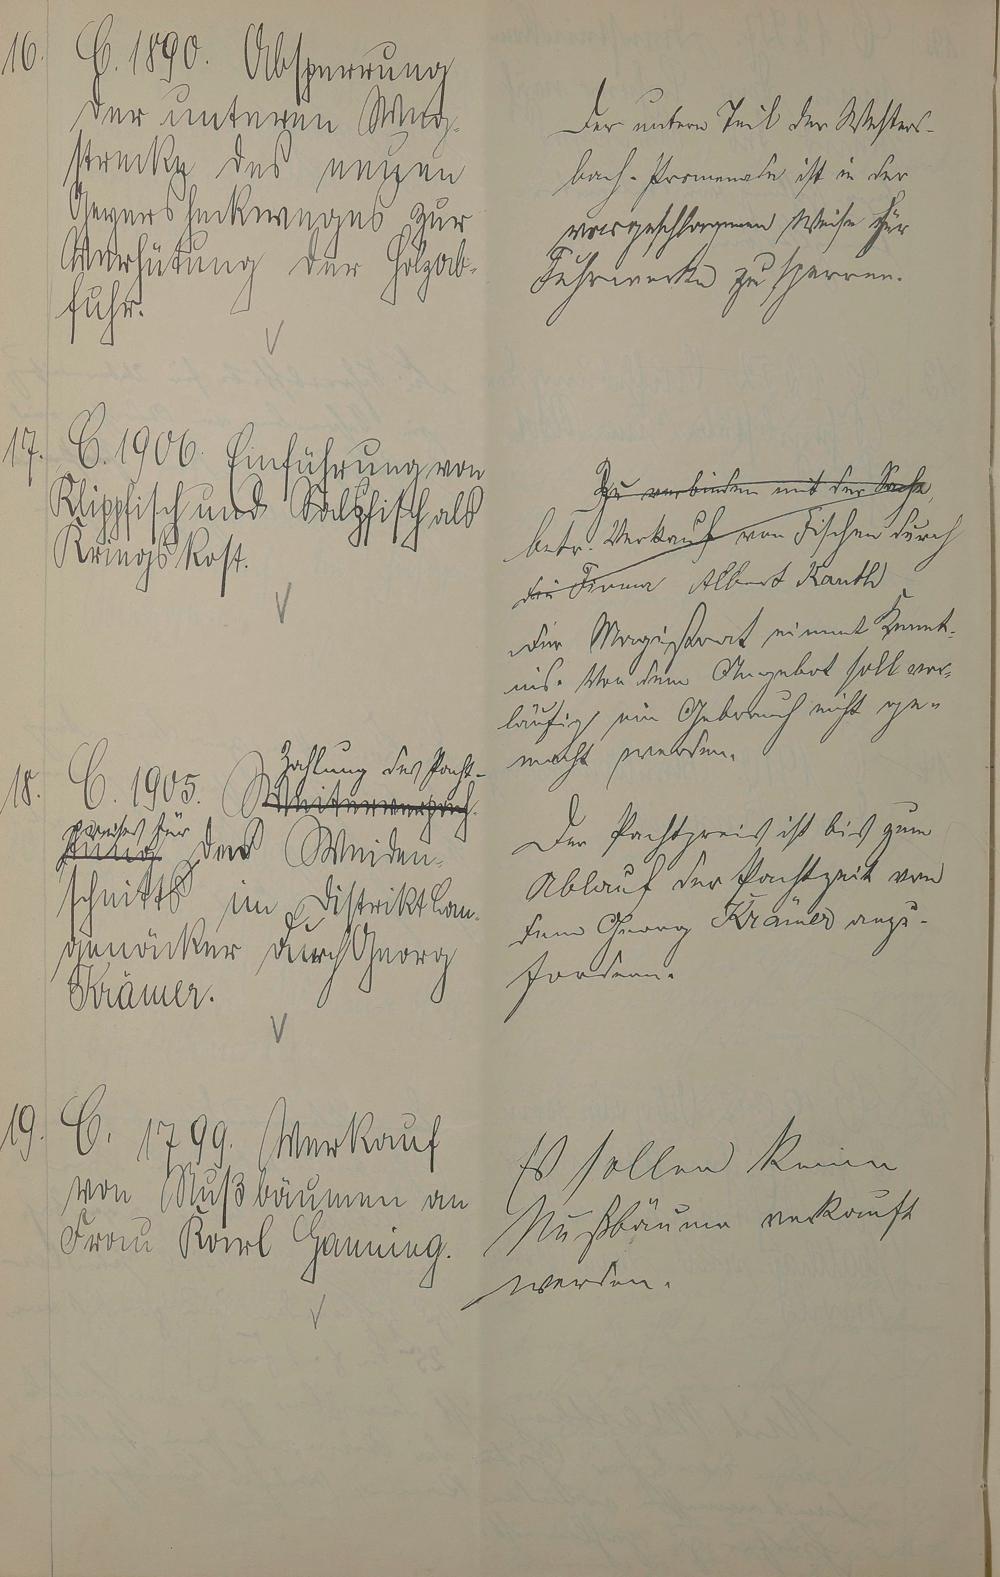 16. C. 1890. Absperrung
der unteren Weg-
strecke des neuen
Geyersheckweges zur
Verhütung der Holzab-
fuhr.
Der untere Teil der Westers-
bach-Promenade ist in der
vorgeschlagenen Weise für
Fuhrwerke zu sperren.
17. C. 1906. Einführung von
Klippfisch und Salzfisch als
Kriegskost.
Zu verbinden mit der Sache,
betr. Verkauf von Fischen durch
die Firma Albert
Der Magistrat nimmt Kennt-
nis. Von dem Angebot soll vor-
läufig ein Gebrauch nicht ge-
macht werden.
18. C. 1905. Zahlung des Pacht-
preises für
den Weiden-
schnitt im Distrikt Lan-
genäcker durch Georg
Krämer.
Der Pachtpreis ist bis zum
Ablauf der Pachtzeit von
dem Georg Krämer anzu-
fordern.
19. C. 1799. Verkauf
von Nußbäumen an
Frau Karl Ganning.
Es sollen keine
Nußbäume verkauft
werden.